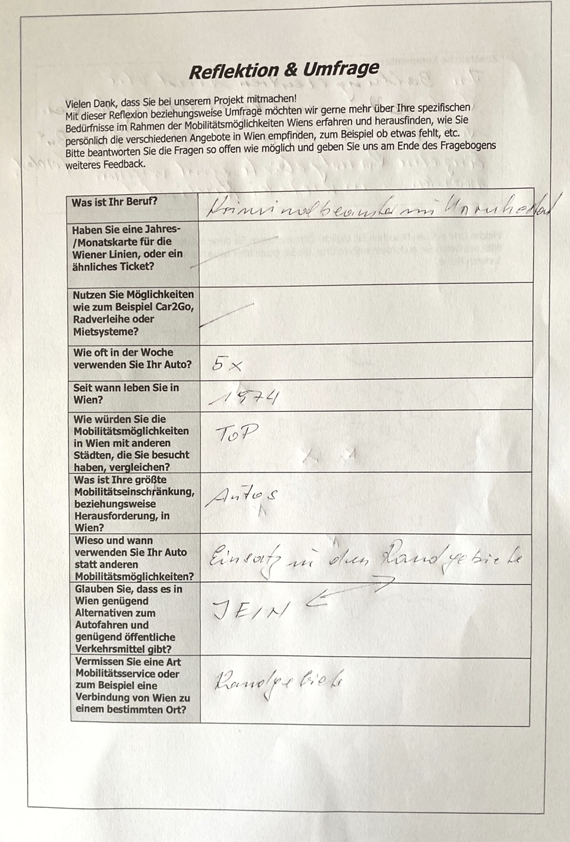 Reflektion & Umfrage
Vielen Dank, dass Sie bei unserem Projekt mitmachen!
Mit dieser Reflexion beziehungsweise Umfrage möchten wir gerne mehr über Ihre spezifischen
Bedürfnisse im Rahmen der Mobilitätsmöglichkeiten Wiens erfahren und herausfinden, wie Sie
persönlich die verschiedenen Angebote in Wien empfinden, zum Beispiel ob etwas fehlt, etc.
Bitte beantworten Sie die Fragen so offen wie möglich und geben Sie uns am Ende des Fragebogens
weiteres Feedback.
Was ist Ihr Beruf?
Kriminalbeamter im Unruhestand
Haben Sie eine Jahres-
/Monatskarte für die
Wiener Linien, oder ein
ähnliches Ticket?
Nutzen Sie Möglichkeiten
wie zum Beispiel Car2Go,
Radverleihe oder
Mietsysteme?
Wie oft in der Woche
verwenden Sie Ihr Auto?
5x
Seit wann leben Sie in
Wien?
1974
Wie würden Sie die
Mobilitätsmöglichkeiten
in Wien mit anderen
Städten, die Sie besucht
haben, vergleichen?
TOP
Was ist Ihre größte
Mobilitätseinschränkung,
beziehungsweise
Herausforderung, in
Wien?
Autos
Wieso und wann
verwenden Sie Ihr Auto
statt anderen
Mobilitätsmöglichkeiten?
Einsatz in den Randgebiete
Glauben Sie, dass es in
Wien genügend
Alternativen zum
Autofahren und
genügend öffentliche
Verkehrsmittel gibt?
JEIN
Vermissen Sie eine Art
Mobilitätsservice oder
zum Beispiel eine
Verbindung von Wien zu
einem bestimmten Ort?
Randgebiete